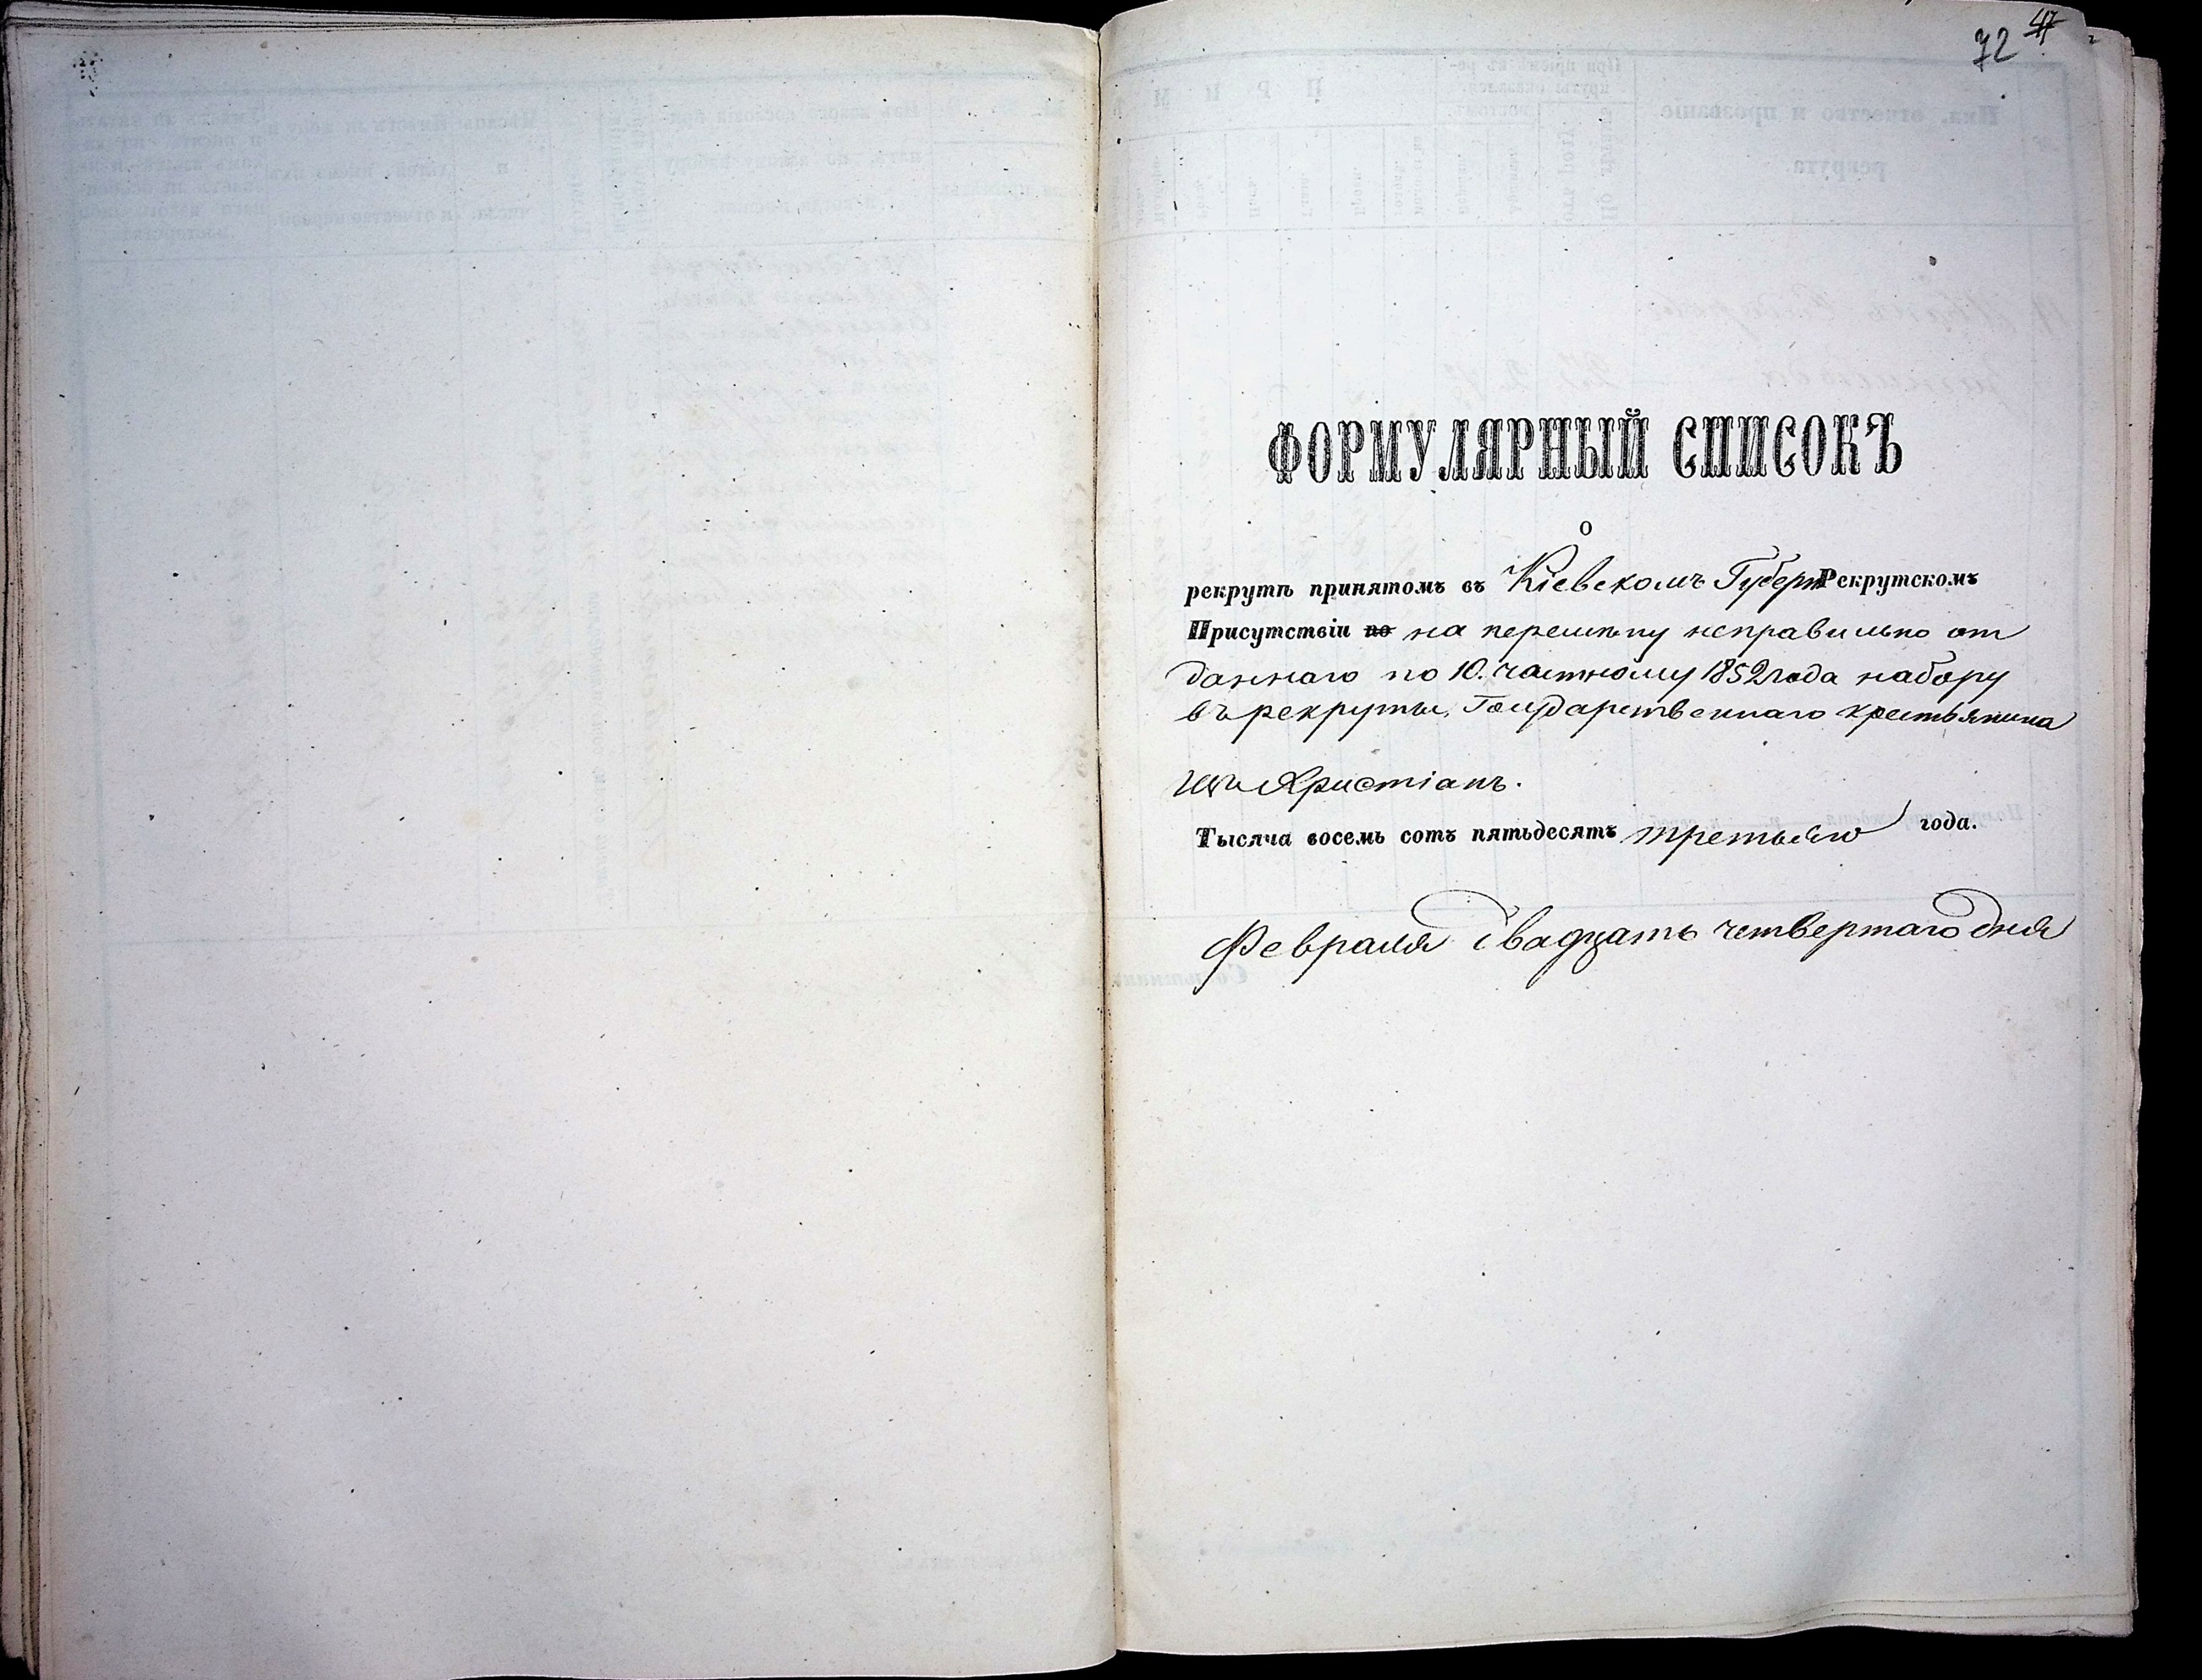 72 47
ФОРМУЛЯРНЫЙ СПИСОКЪ
о
рекрутѣ принятомъ въ Кіевскомъ Губерн Рекрутскомъ
Присутствіи по на перемѣну неправильно от
даннаго по 10. частному 1852 года набору
въ рекруты, Государственнаго крестьянина
изъ Христіанъ.
Тысяча восемь сотъ пятьдесятъ третьяго года.
Февраля двадцать четвертаго дня